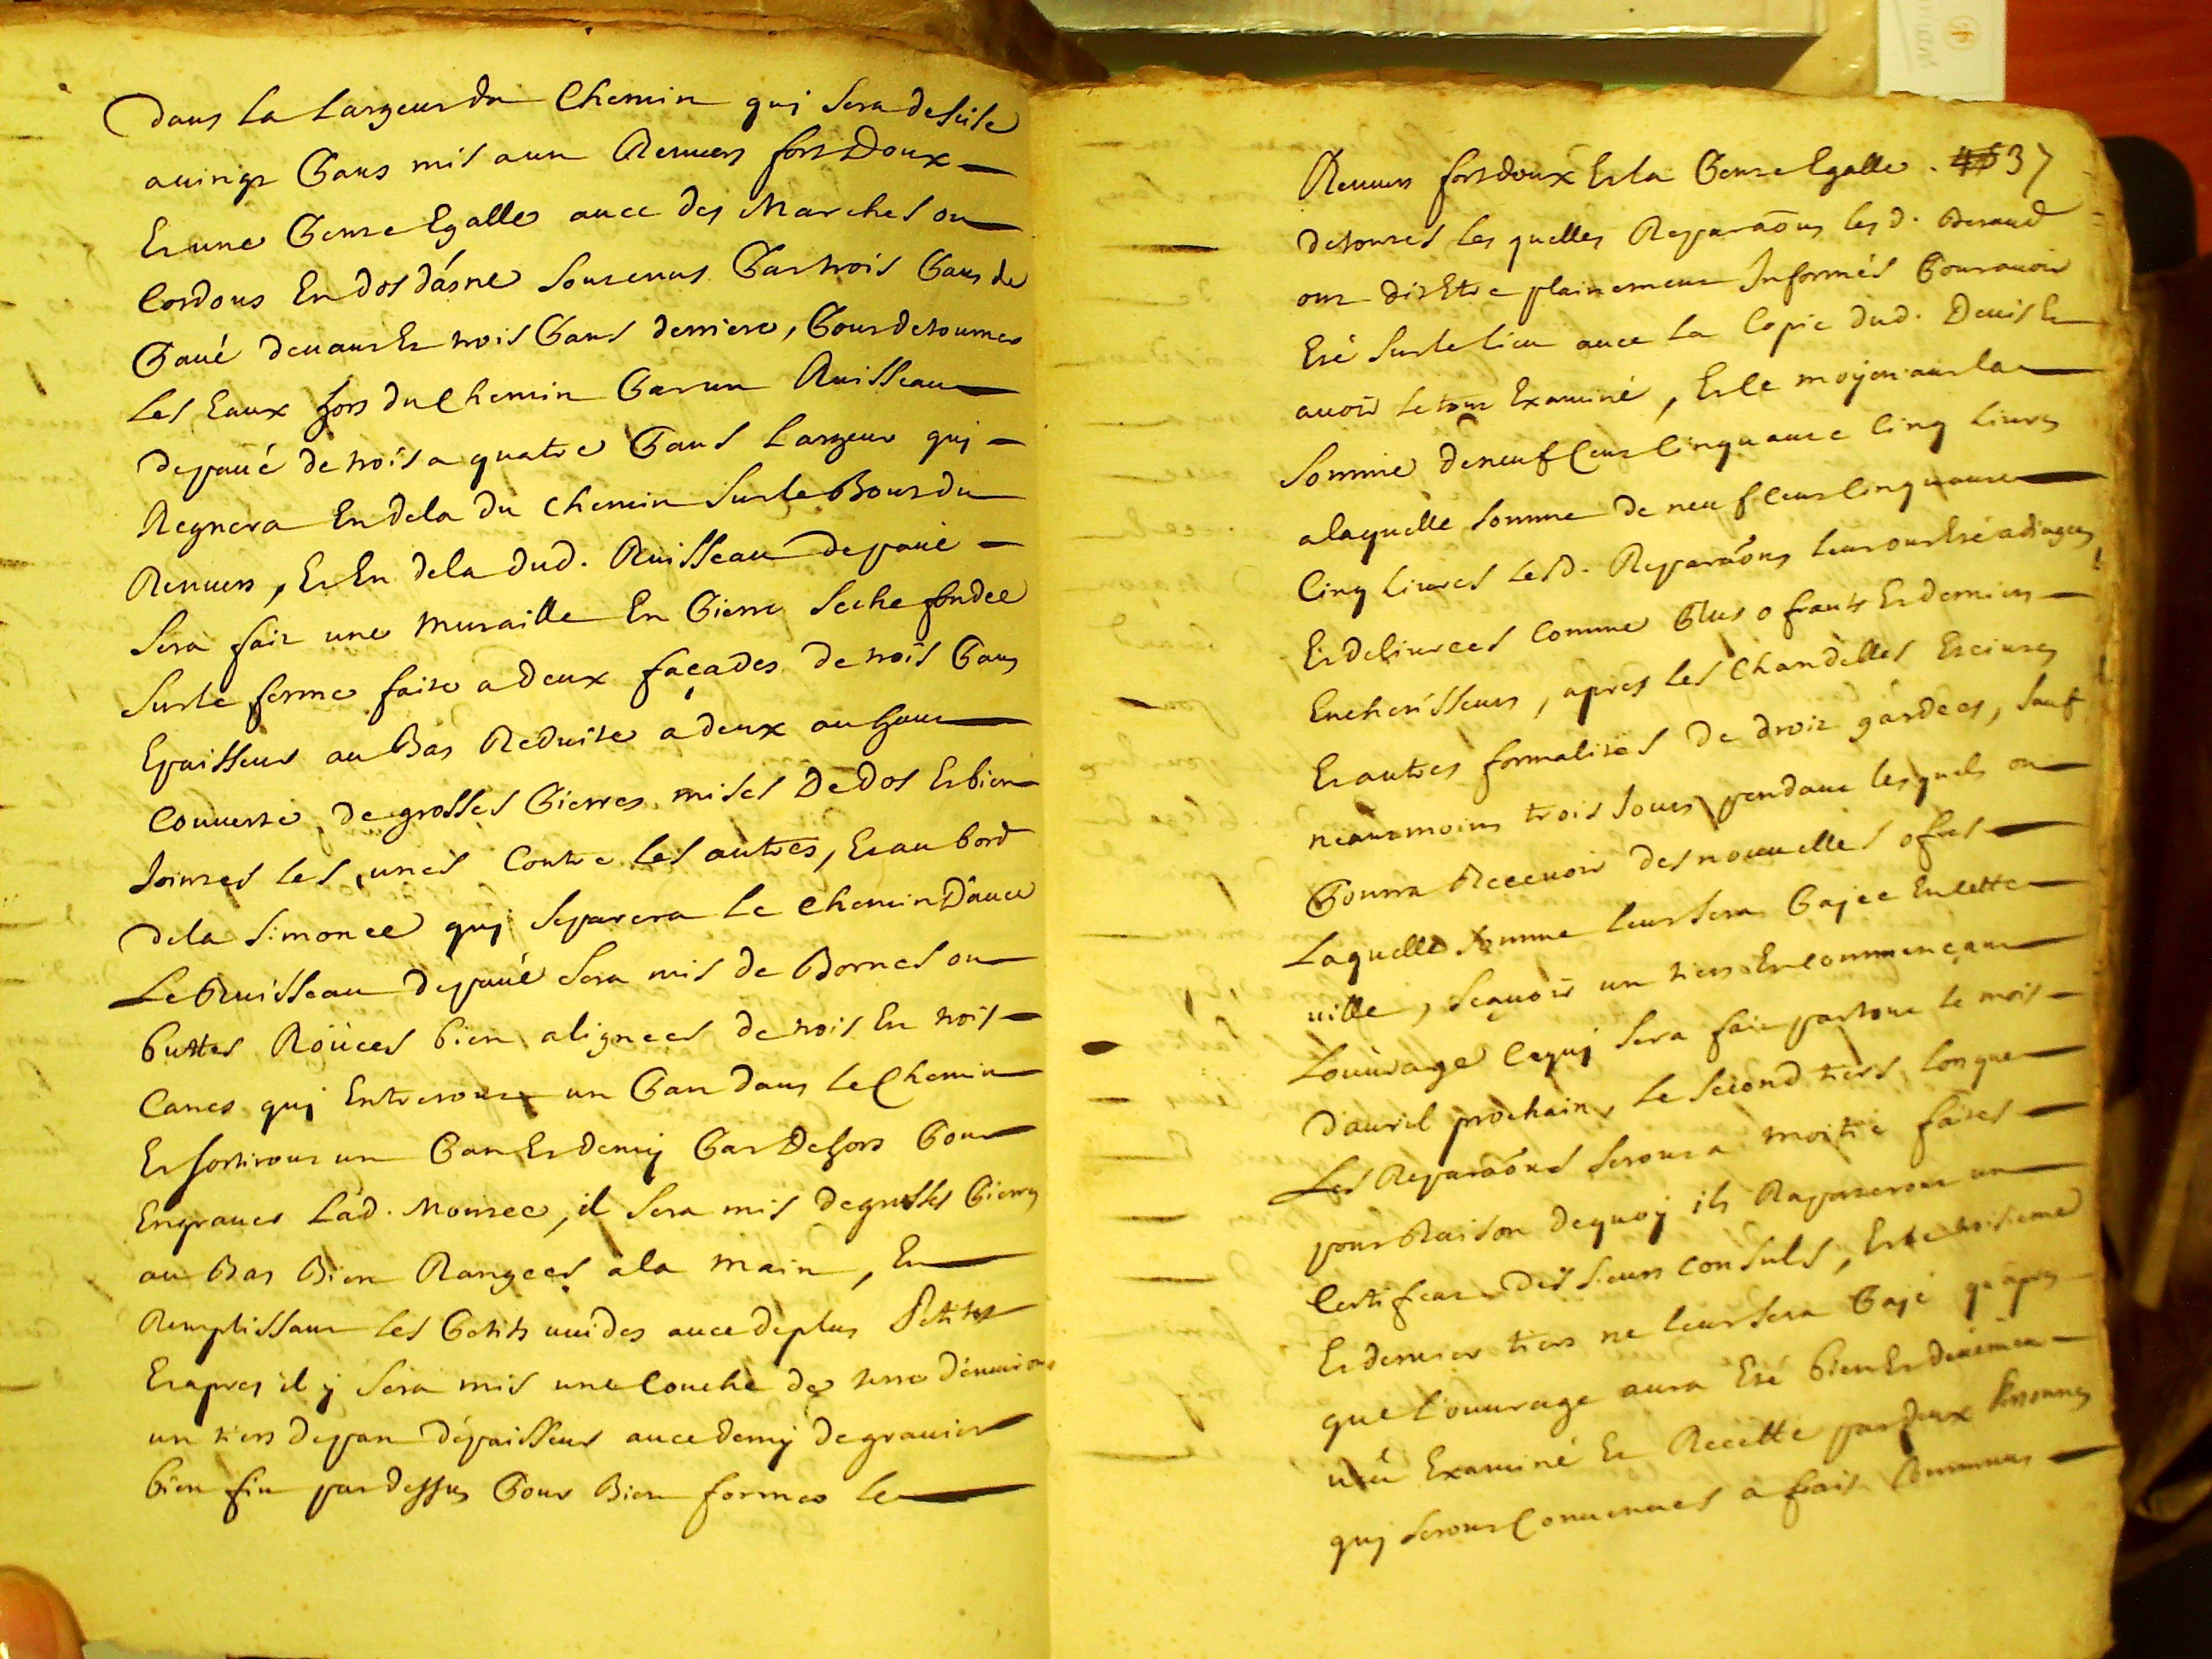 Dans la largeur du Chemin quj sera desuite
a vingt Pans mis a un Revers fort Doux
Et une Pente Egalle avec des Marches ou
Cordons En dos d'ásne soutenus Par trois Pans de
Pavé devant Et trois Pans derriere, Pour detourner
les Eaux hors du Chemin Par un Ruisseau
de pavé de trois a quatre Pans Largeur quj
Regnera En dela du Chemin sur le Bout du
Revers, Et En dela dud. Ruisseau de pavé
sera fait une muraille En Pierre seche fondée
sur le ferme faite a deux façades de trois Pans
Epaisseur au Bas Reduite a deux au haut
Couverte de grosses Pierres mises De Dos Et bien
Jointes les unes Contre les autres, Et au bord
de la Simonee quj separera le Chemin D'avec
Le Ruisseau de pavé sera mis de Bornes ou
buttes Roüees bien alignees de trois En trois
Canes quj Entreront un Pan dans le Chemin
Et sortiront un Pan Et demij Par Dehors Pour
Engraver Lad. Montee, il sera mis de grosses Pierres
au Bas Bien Rangees a la main, En
Remplissant les Petits vuides avec de plus Petites
Et apres il ÿ sera mis une Couche de terre d'environ
un tiers de pan d'épaisseur avec demij de gravier
bien fin par dessus Pour Bien former le
Revers fort doux Et la Pente Egalle. 37
de toutes les quelles Reparaons les d. Beraud
ont dit Etre plainement Informés Pour avoir
Eté sur le lieu avec la Copie dud. Devis Et
avoir le tout Examiné, Et le moÿenant la
somme de neuf Cent Cinquante Cinq Livres
a laquelle somme de neuf Cent Cinquante
Cinq Livres Lesd. Reparaons leur ont Eté adjugees
Et delivrees Comme Plus ofrants Et derniers
Encherisseurs, apres les Chandelles Eteintes
Et autres formalites de droit gardees, sauf
neantmoins trois Jours pendant lesquels on
Pourra Recevoir des nouvelles ofres
Laquelle somme leur sera Pajee En Cette
ville, sçavoir un tiers En Commençant
L'ouvrage Ce quj sera fait par tout le mois
d'avril prochain, le second tiers lorque
Les Reparaons seront a moitié faites
pour Raison de quoÿ ils Raporteront un
Certificat des sieurs Consuls, Et le troisieme
Et dernier tiers ne leur sera Pajé qu'apres
que l'ouvrage aura Eté bien Et deüement
veü Examiné Et Recette par deux Personnes
quj seront Convenues a frais Communs